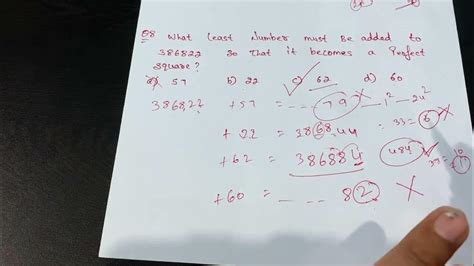 Q8 What Least Number must be added to
386822 so that it becomes a Perfect
square?
a) 57 b) 22 c) 62 d) 60
386822 + 57 = - - - 79 X
+ 22 = 386844
+ 62 = 386884 484 ✓
+ 60 = - - - 82 X